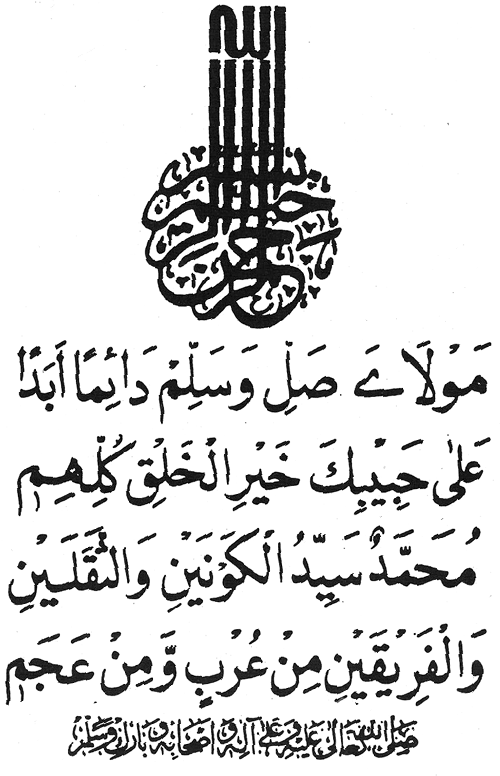 بسم الله الرحمن الرحيم
مَوْلَاىَ صَلِّ وَسَلِّمْ دَائِمًا أَبَدًا
عَلٰى حَبِيْبِكَ خَيْرِ الْخَلْقِ كُلِّهِمِ
مُحَمَّدٌ سَيِّدُ الْكَوْنَيْنِ وَالثَّقَلَيْنِ
وَالْفَرِيْقَيْنِ مِنْ عُرْبٍ وَّمِنْ عَجَمِ
صَلَّى اللهُ تَعَالٰى عَلَيْهِ وَعَلٰى آلِهٖ وَاَصْحَابِهٖ وَبَارَكَ وَسَلَّمْ